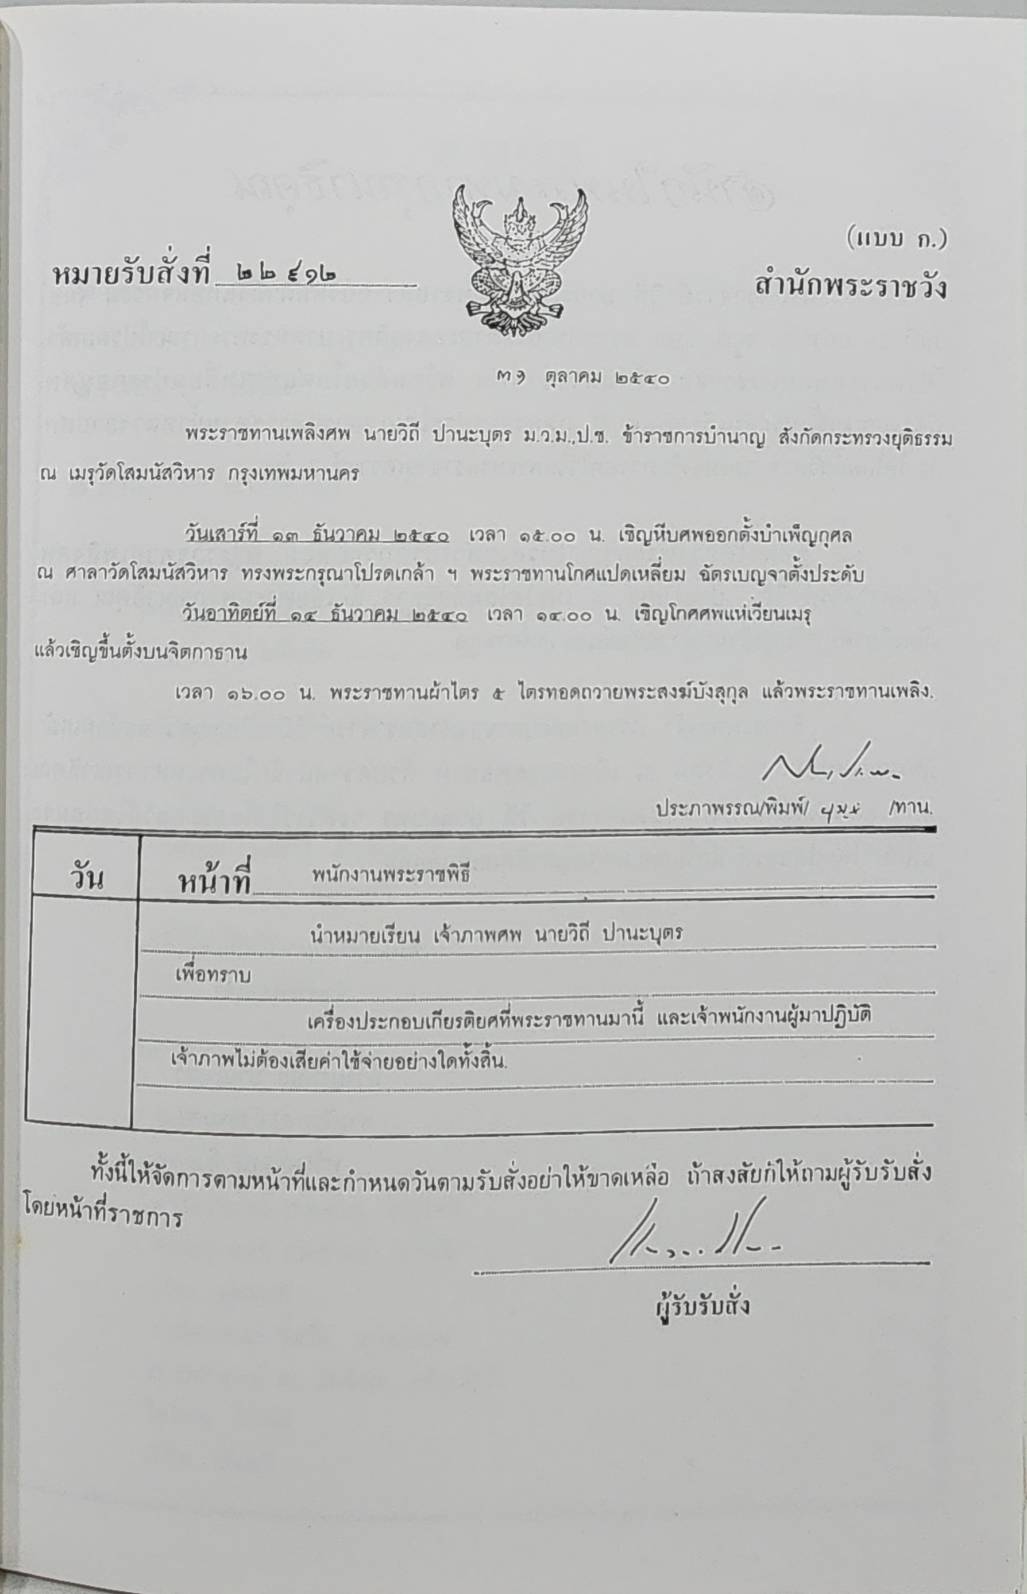 (แบบ ก.)
หมายรับสั่งที่ ๒๒๙๑๒
สำนักพระราชวัง
๓๑ ตุลาคม ๒๕๔๐
พระราชทานเพลิงศพ นายวิถี ปานะบุตร ม.ว.ม.,ป.ช. ข้าราชการบำนาญ สังกัดกระทรวงยุติธรรม
ณ เมรุวัดโสมนัสวิหาร กรุงเทพมหานคร
วันเสาร์ที่ ๑๓ ธันวาคม ๒๕๔๐ เวลา ๑๕.๐๐ น. เชิญหีบศพออกตั้งบำเพ็ญกุศล
ณ ศาลาวัดโสมนัสวิหาร ทรงพระกรุณาโปรดเกล้า ฯ พระราชทานโกศแปดเหลี่ยม ฉัตรเบญจาตั้งประดับ
วันอาทิตย์ที่ ๑๔ ธันวาคม ๒๕๔๐ เวลา ๑๔.๐๐ น. เชิญโกศศพแห่เวียนเมรุ
แล้วเชิญขึ้นตั้งบนจิตกาธาน
เวลา ๑๖.๐๐ น. พระราชทานผ้าไตร ๕ ไตรทอดถวายพระสงฆ์บังสุกุล แล้วพระราชทานเพลิง.
ประภาพรรณ/พิมพ์/ /ทาน.
วัน
หน้าที่ พนักงานพระราชพิธี
นำหมายเรียน เจ้าภาพศพ นายวิถี ปานะบุตร
เพื่อทราบ
เครื่องประกอบเกียรติยศที่พระราชทานมานี้ และเจ้าพนักงานผู้มาปฏิบัติ
เจ้าภาพไม่ต้องเสียค่าใช้จ่ายอย่างใดทั้งสิ้น.
ทั้งนี้ให้จัดการตามหน้าที่และกำหนดวันตามรับสั่งอย่าให้ขาดเหลือ ถ้าสงสัยก็ให้ถามผู้รับรับสั่ง
โดยหน้าที่ราชการ
ผู้รับรับสั่ง